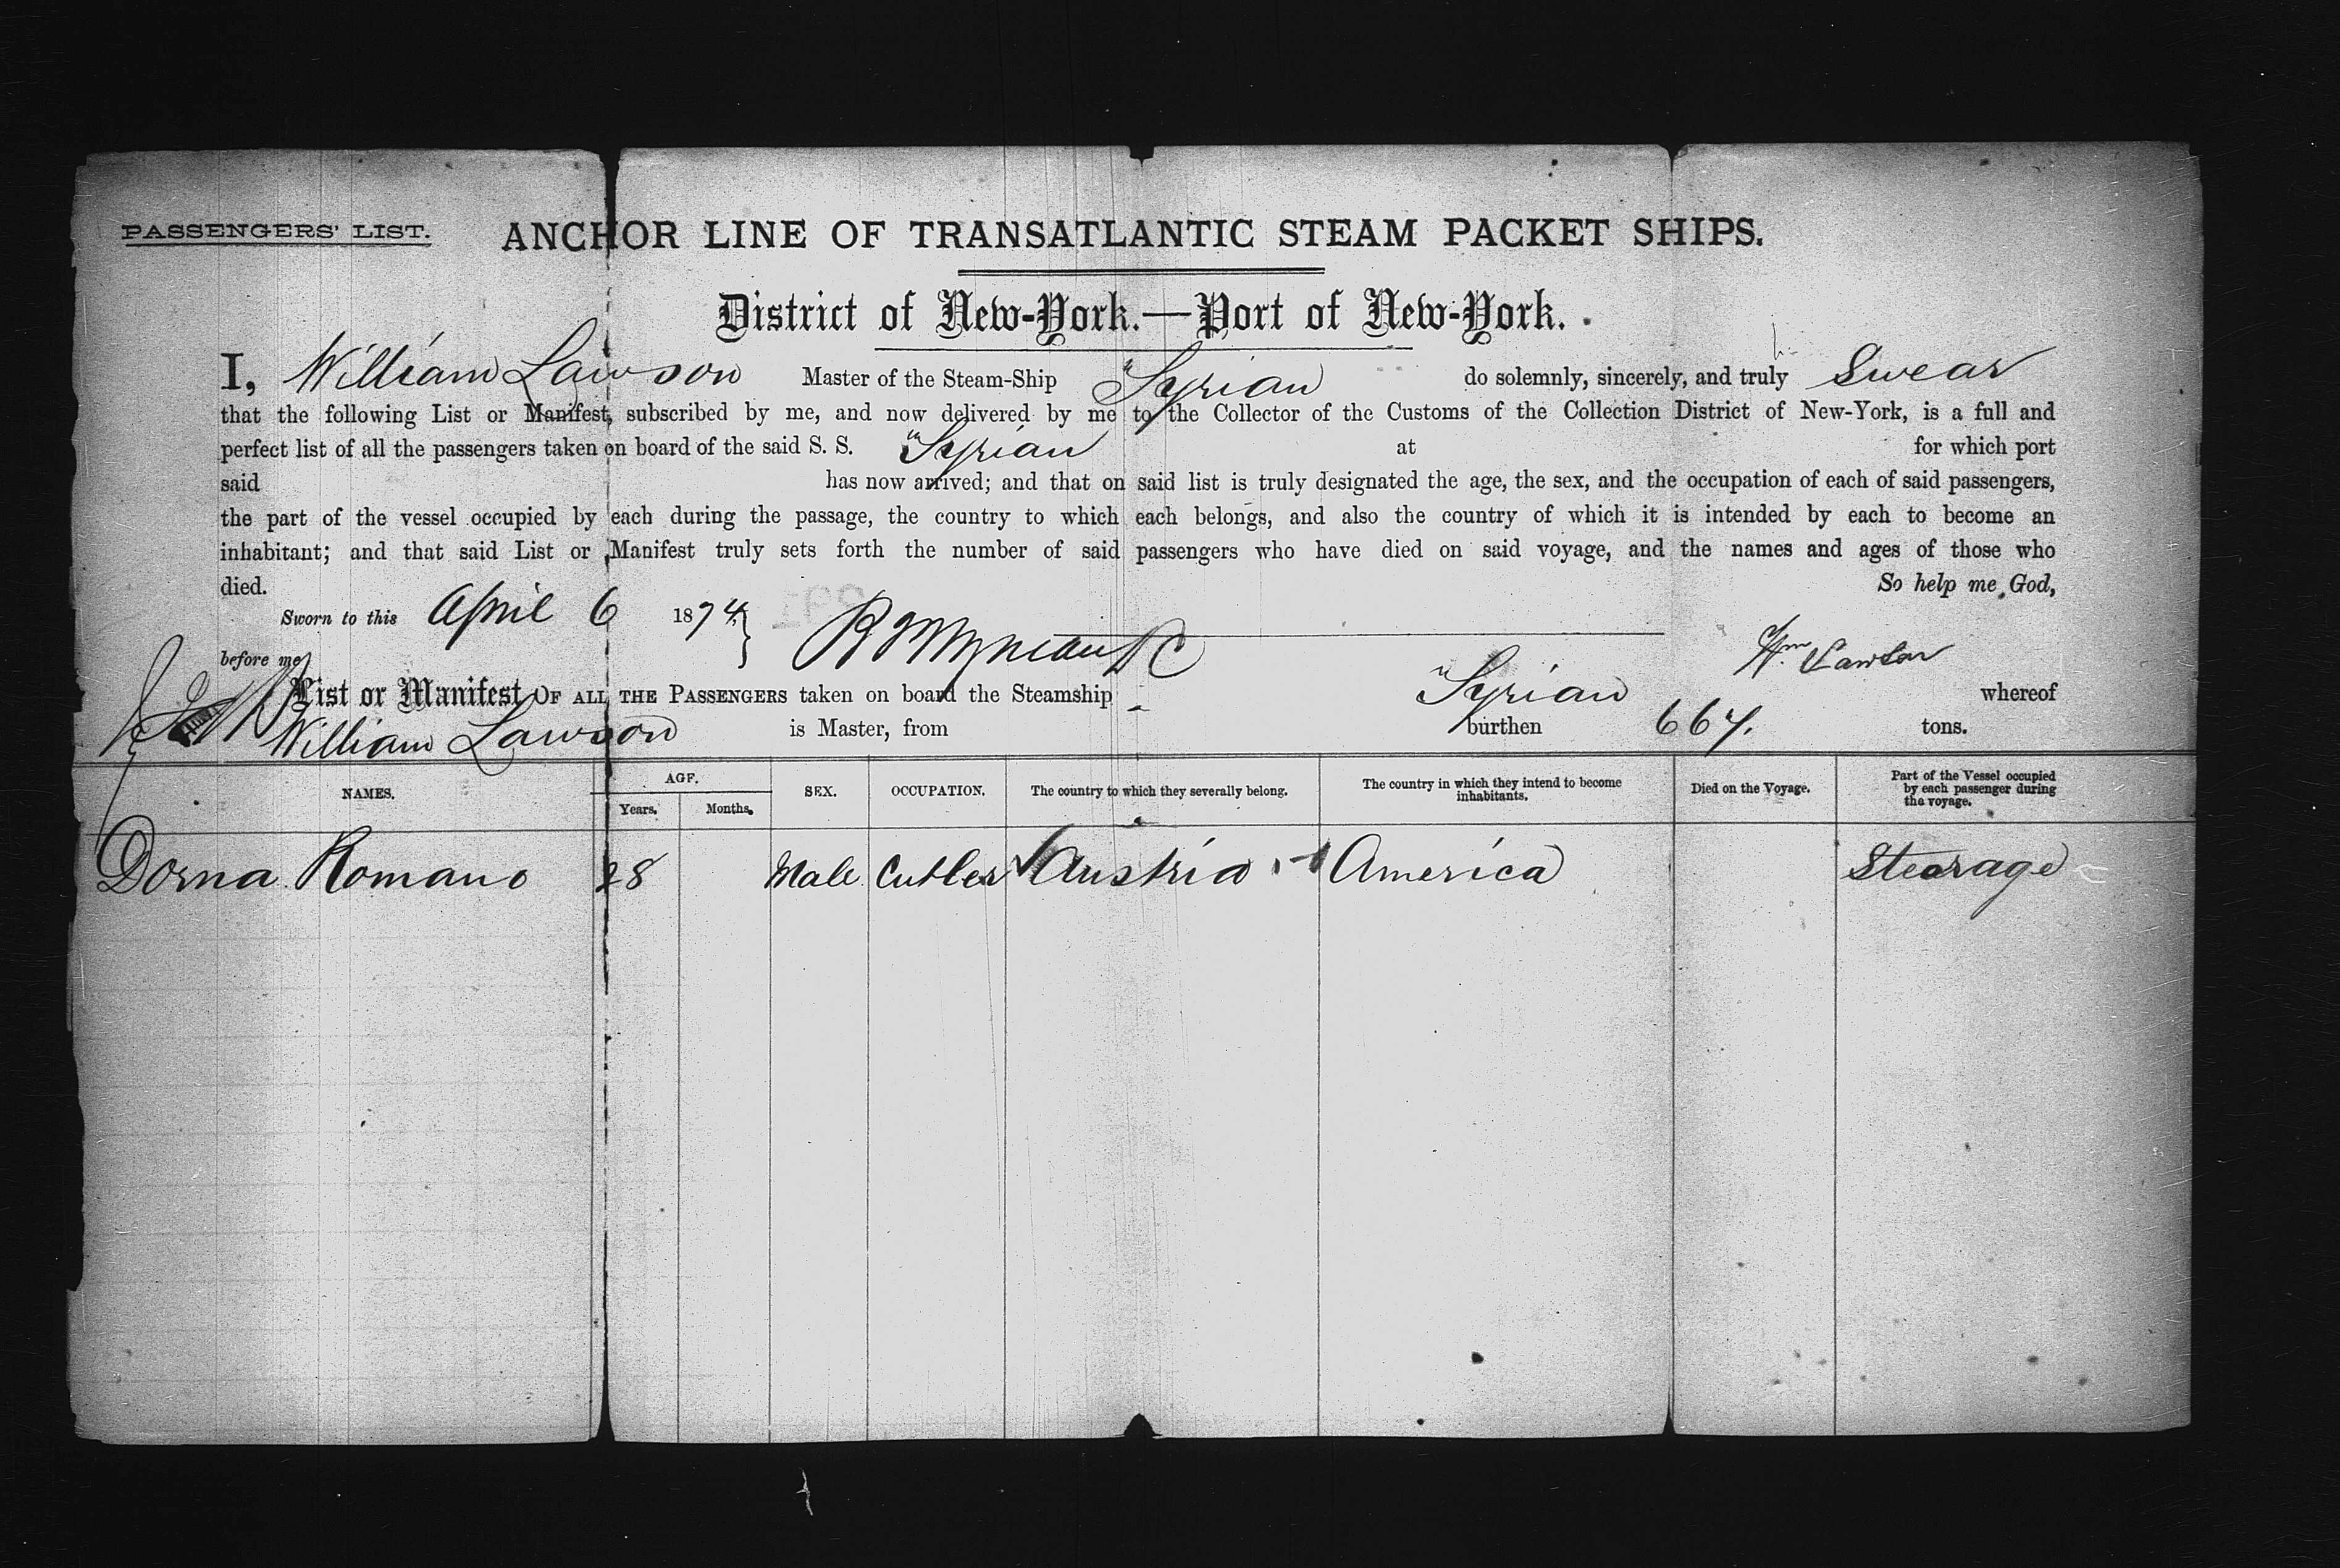 PASSENGERS' LIST. ANCHOR LINE OF TRANSATLANTIC STEAM PACKET SHIPS.
District of New-York.—Port of New-York.
I, William Lawson Master of the Steam-Ship "Syrian do solemnly, sincerely, and truly Swear
that the following List or Manifest, subscribed by me, and now delivered by me to the Collector of the Customs of the Collection District of New-York, is a full and
perfect list of all the passengers taken on board of the said S. S. "Syrian at for which port
said has now arrived; and that on said list is truly designated the age, the sex, and the occupation of each of said passengers,
the part of the vessel occupied by each during the passage, the country to which each belongs, and also the country of which it is intended by each to become an
inhabitant; and that said List or Manifest truly sets forth the number of said passengers who have died on said voyage, and the names and ages of those who
died. So help me God,
Sworn to this April 6 1874
before me Wm Lawson
List or Manifest OF ALL THE PASSENGERS taken on board the Steamship "Syrian whereof
William Lawson is Master, from burthen 664. tons.
NAMES. AGE. Years. Months. SEX. OCCUPATION. The country to which they severally belong. The country in which they intend to become inhabitants. Died on the Voyage. Part of the Vessel occupied by each passenger during the voyage.
Dorna Romano 28 Male Cutler Austria America Stearage